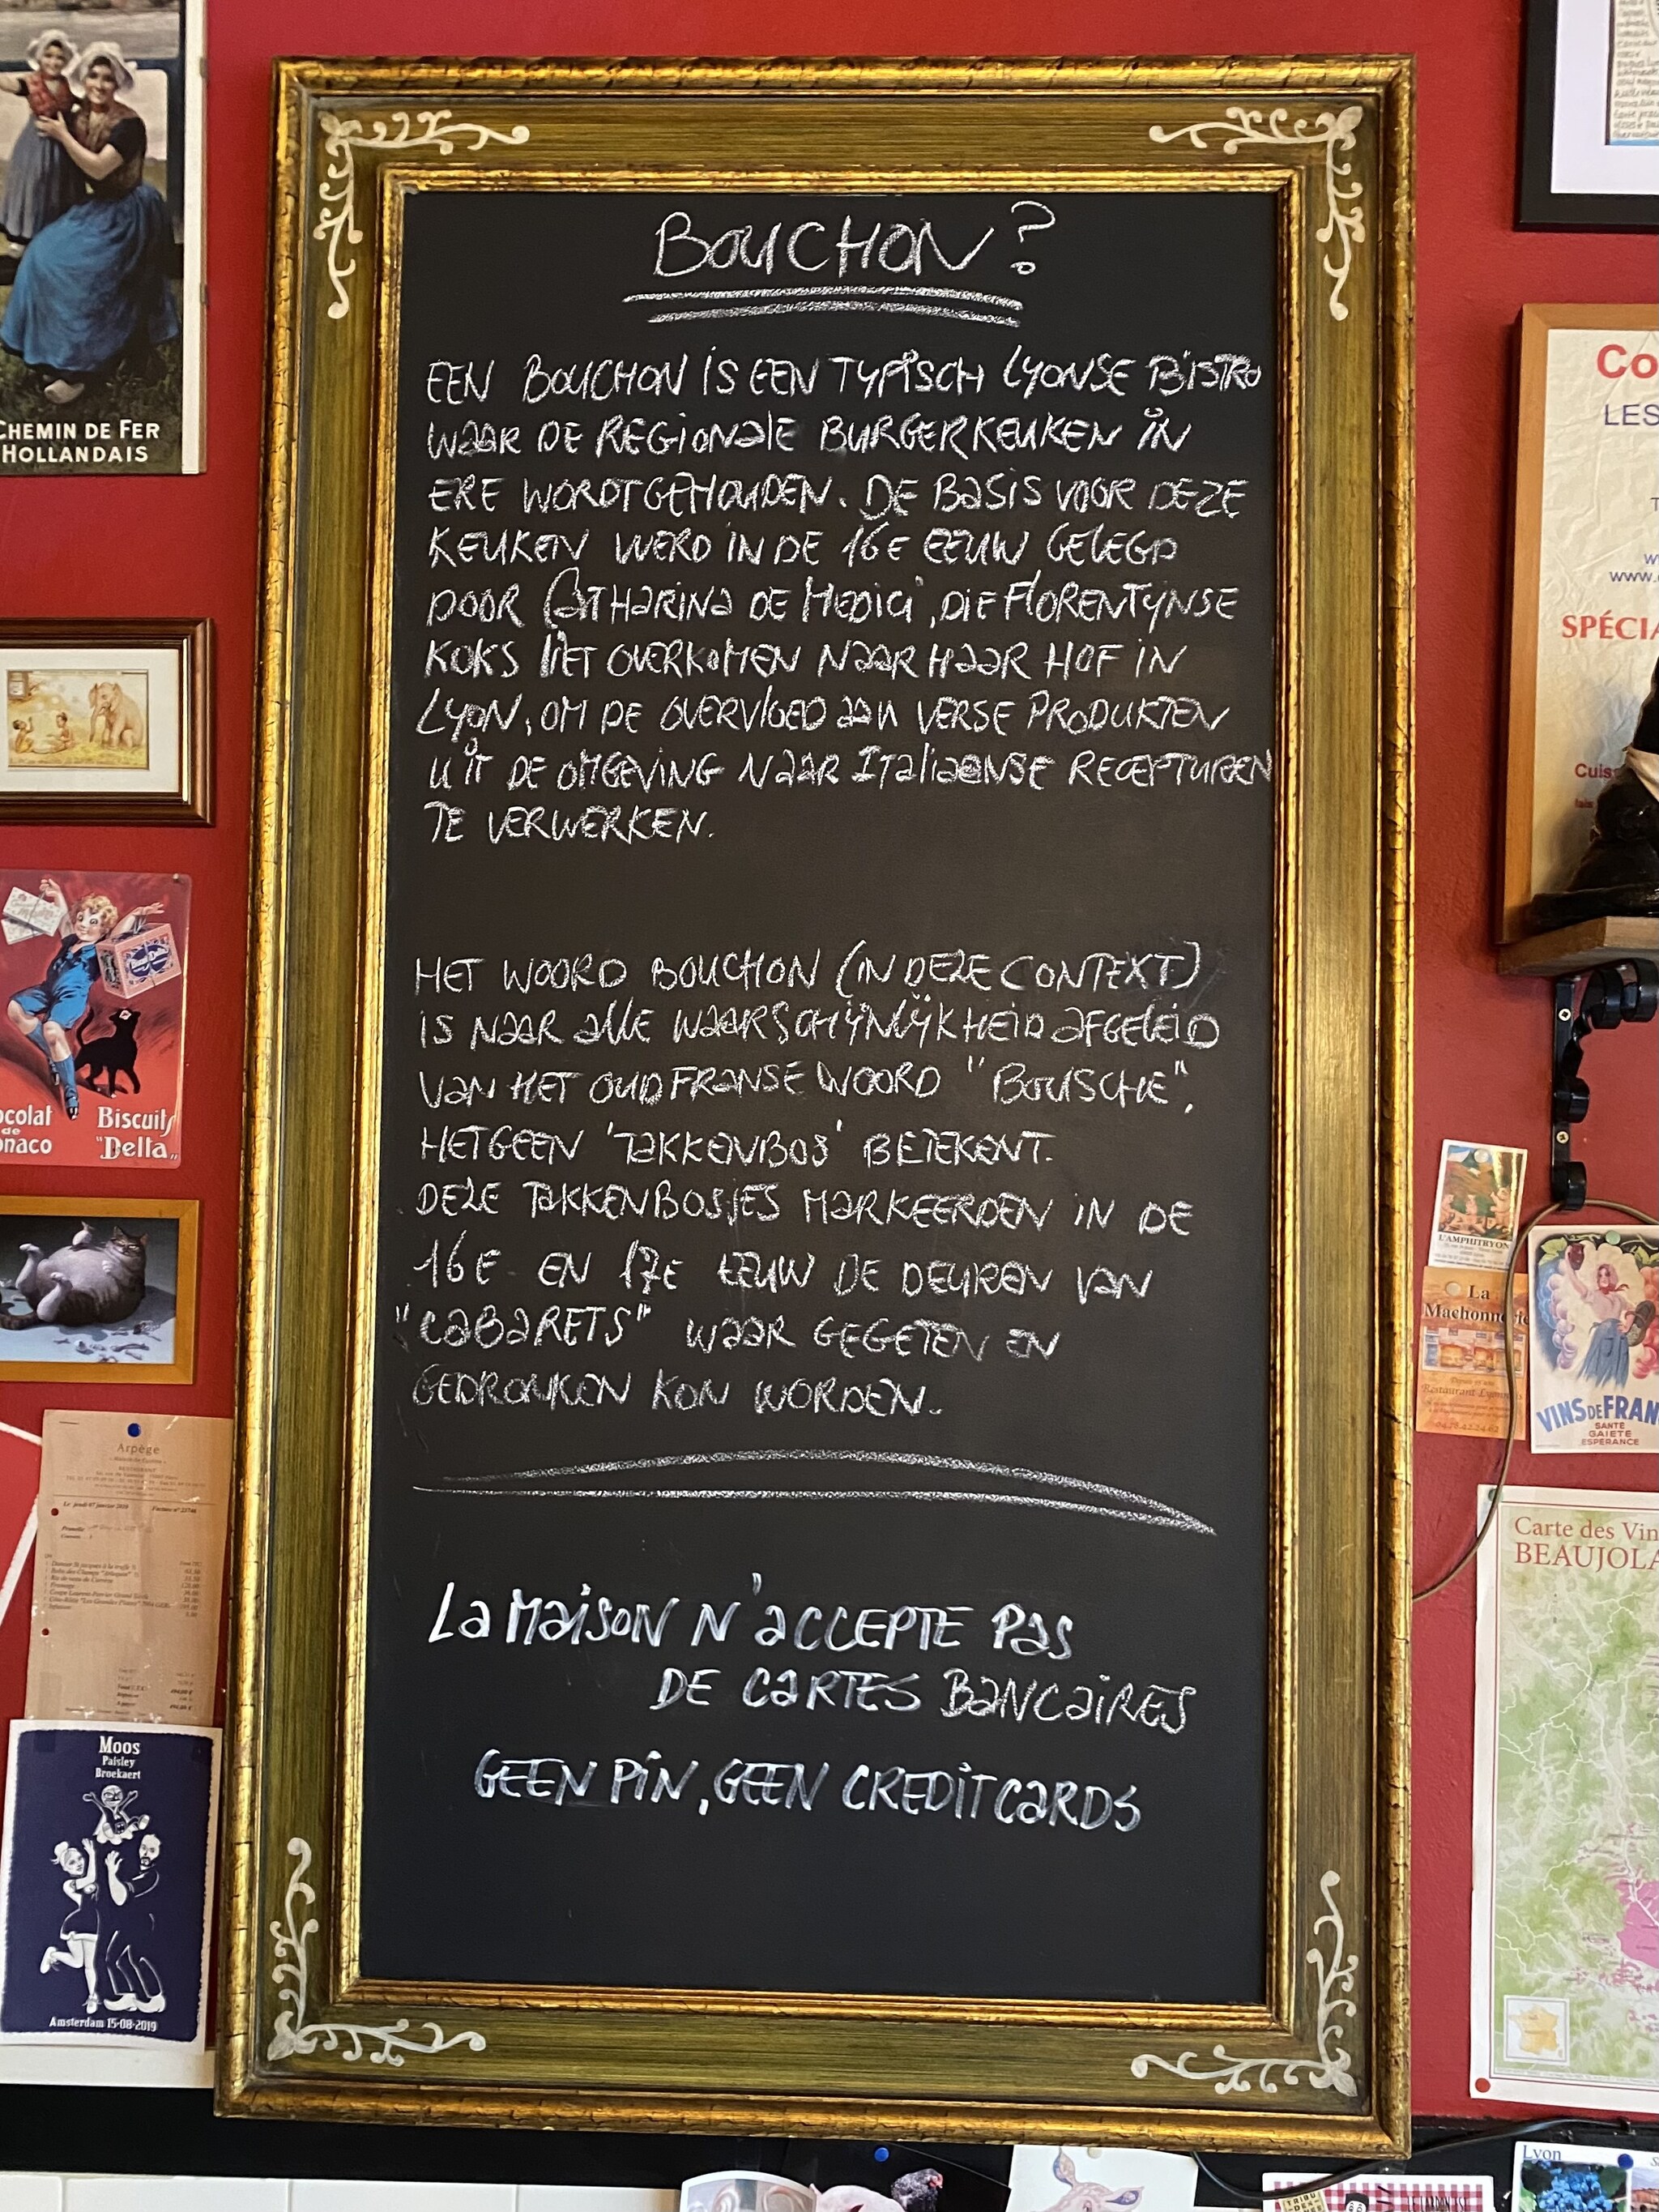 BOUCHON?
EEN BOUCHON IS EEN TYPISCH LYONSE BISTRO
WAAR DE REGIONALE BURGERKEUKEN IN
ERE WORDT GEHOUDEN. DE BASIS VOOR DEZE
KEUKEN WERD IN DE 16E EEUW GELEGD
DOOR CATHARINA DE MEDICI, DIE FLORENTIJNSE
KOKS LIET OVERKOMEN NAAR HAAR HOF IN
LYON, OM DE OVERVLOED AAN VERSE PRODUKTEN
UIT DE OMGEVING NAAR ITALIAANSE RECEPTUREN
TE VERWERKEN.
HET WOORD BOUCHON (IN DEZE CONTEXT)
IS NAAR ALLE WAARSCHIJNLIJKHEID AFGELEID
VAN HET OUD FRANSE WOORD "BOUSCHE",
HETGEEN 'TAKKENBOS' BETEKENT.
DEZE TAKKENBOSJES MARKEERDEN IN DE
16E EN 17E EEUW DE DEUREN VAN
"CABARETS" WAAR GEGETEN EN
GEDRONKEN KON WORDEN.
LA MAISON N'ACCEPTE PAS
DE CARTES BANCAIRES
GEEN PIN, GEEN CREDITCARDS
CHEMIN DE FER
HOLLANDAIS
Biscuits
"Delta"
Arpège
Moos
Paisley
Broekaert
Amsterdam 15-08-2019
Co
LES
SPÉCIA
Cuis
L'AMPHITRYON
La
Machonnerie
Restaurant Lyonnais
VINS DE FRAN
SANTÉ
GAIETÉ
ESPERANCE
Carte des Vin
BEAUJOLA
Lyon